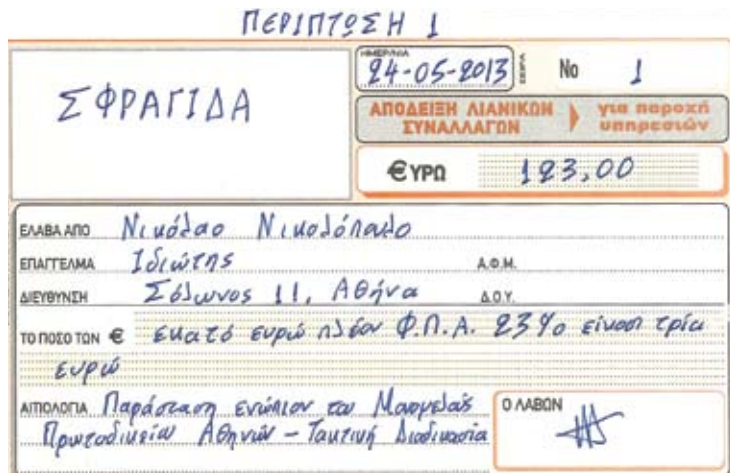 ΠΕΡΙΠΤΩΣΗ 1
ΣΦΡΑΓΙΔΑ
ΗΜΕΡ/ΝΙΑ
24-05-2013 ΣΕΙΡΑ No 1
ΑΠΟΔΕΙΞΗ ΛΙΑΝΙΚΩΝ ΣΥΝΑΛΛΑΓΩΝ για παροχή υπηρεσιών
€ΥΡΩ 123,00
ΕΛΑΒΑ ΑΠΟ Νικόλαο Νικολόπουλο
ΕΠΑΓΓΕΛΜΑ Ιδιώτης Α.Φ.Μ.
ΔΙΕΥΘΥΝΣΗ Σόλωνος 11, Αθήνα Δ.Ο.Υ.
ΤΟ ΠΟΣΟ ΤΩΝ € εκατό ευρώ πλέον Φ.Π.Α. 23% είκοσι τρία
ευρώ
ΑΙΤΙΟΛΟΓΙΑ Παράσταση ενώπιον του Μονομελούς
Πρωτοδικείου Αθηνών – Τακτική Διαδικασία
Ο ΛΑΒΩΝ